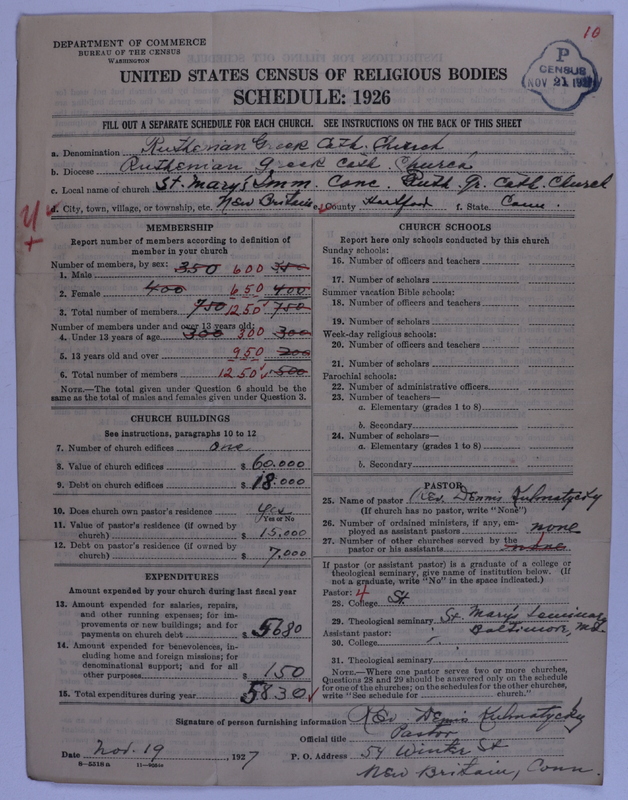 10
DEPARTMENT OF COMMERCE
BUREAU OF THE CENSUS
WASHINGTON
P
CENSUS
NOV 21
UNITED STATES CENSUS OF RELIGIOUS BODIES
SCHEDULE: 1926
FILL OUT A SEPARATE SCHEDULE FOR EACH CHURCH. SEE INSTRUCTIONS ON THE BACK OF THIS SHEET
a. Denomination Ruthenian Greek Cath. Church
b. Diocese Ruthenian Greek Cath. Church
c. Local name of church St. Mary's Imm. Conc. Ruth. Gr. Cath. Church
d. City, town, village, or township, etc. New Britain e. County Hartford f. State Conn.
MEMBERSHIP
Report number of members according to definition of
member in your church
Number of members, by sex:
1. Male 350 600 350
2. Female 400 650 400
3. Total number of members 750 1250 750
Number of members under and over 13 years old:
4. Under 13 years of age 300 300 300
5. 13 years old and over 950 200
6. Total number of members 1250 500
NOTE.—The total given under Question 6 should be the
same as the total of males and females given under Question 3.
CHURCH BUILDINGS
See instructions, paragraphs 10 to 12
7. Number of church edifices one
8. Value of church edifices $ 60.000
9. Debt on church edifices $ 18.000
10. Does church own pastor's residence Yes
Yes or No
11. Value of pastor's residence (if owned by
church) $ 15.000
12. Debt on pastor's residence (if owned by
church) $ 7.000
EXPENDITURES
Amount expended by your church during last fiscal year
13. Amount expended for salaries, repairs,
and other running expenses; for im-
provements or new buildings; and for
payments on church debt $ 5680
14. Amount expended for benevolences, in-
cluding home and foreign missions; for
denominational support; and for all
other purposes $ 150
15. Total expenditures during year $ 5830
CHURCH SCHOOLS
Report here only schools conducted by this church
Sunday schools:
16. Number of officers and teachers
17. Number of scholars
Summer vacation Bible schools:
18. Number of officers and teachers
19. Number of scholars
Week-day religious schools:
20. Number of officers and teachers
21. Number of scholars
Parochial schools:
22. Number of administrative officers
23. Number of teachers—
a. Elementary (grades 1 to 8)
b. Secondary
24. Number of scholars—
a. Elementary (grades 1 to 8)
b. Secondary
PASTOR
25. Name of pastor Rev. Dennis Kulmatycky
(If church has no pastor, write "None")
26. Number of ordained ministers, if any, em-
ployed as assistant pastors none
27. Number of other churches served by the
pastor or his assistants none
If pastor (or assistant pastor) is a graduate of a college or
theological seminary, give name of institution below. (If
not a graduate, write "No" in the space indicated.)
Pastor: 4
28. College St.
29. Theological seminary St. Mary's Seminary
Baltimore, Md.
Assistant pastor:
30. College
31. Theological seminary
NOTE.—Where one pastor serves two or more churches,
Questions 28 and 29 should be answered only on the schedule
for one of the churches; on the schedules for the other churches,
write "See schedule for church."
Signature of person furnishing information Rev. Dennis Kulmatycky
Official title Pastor
Date Nov. 19, 1927 P. O. Address 54 Winter St
New Britain, Conn.
8-5518a